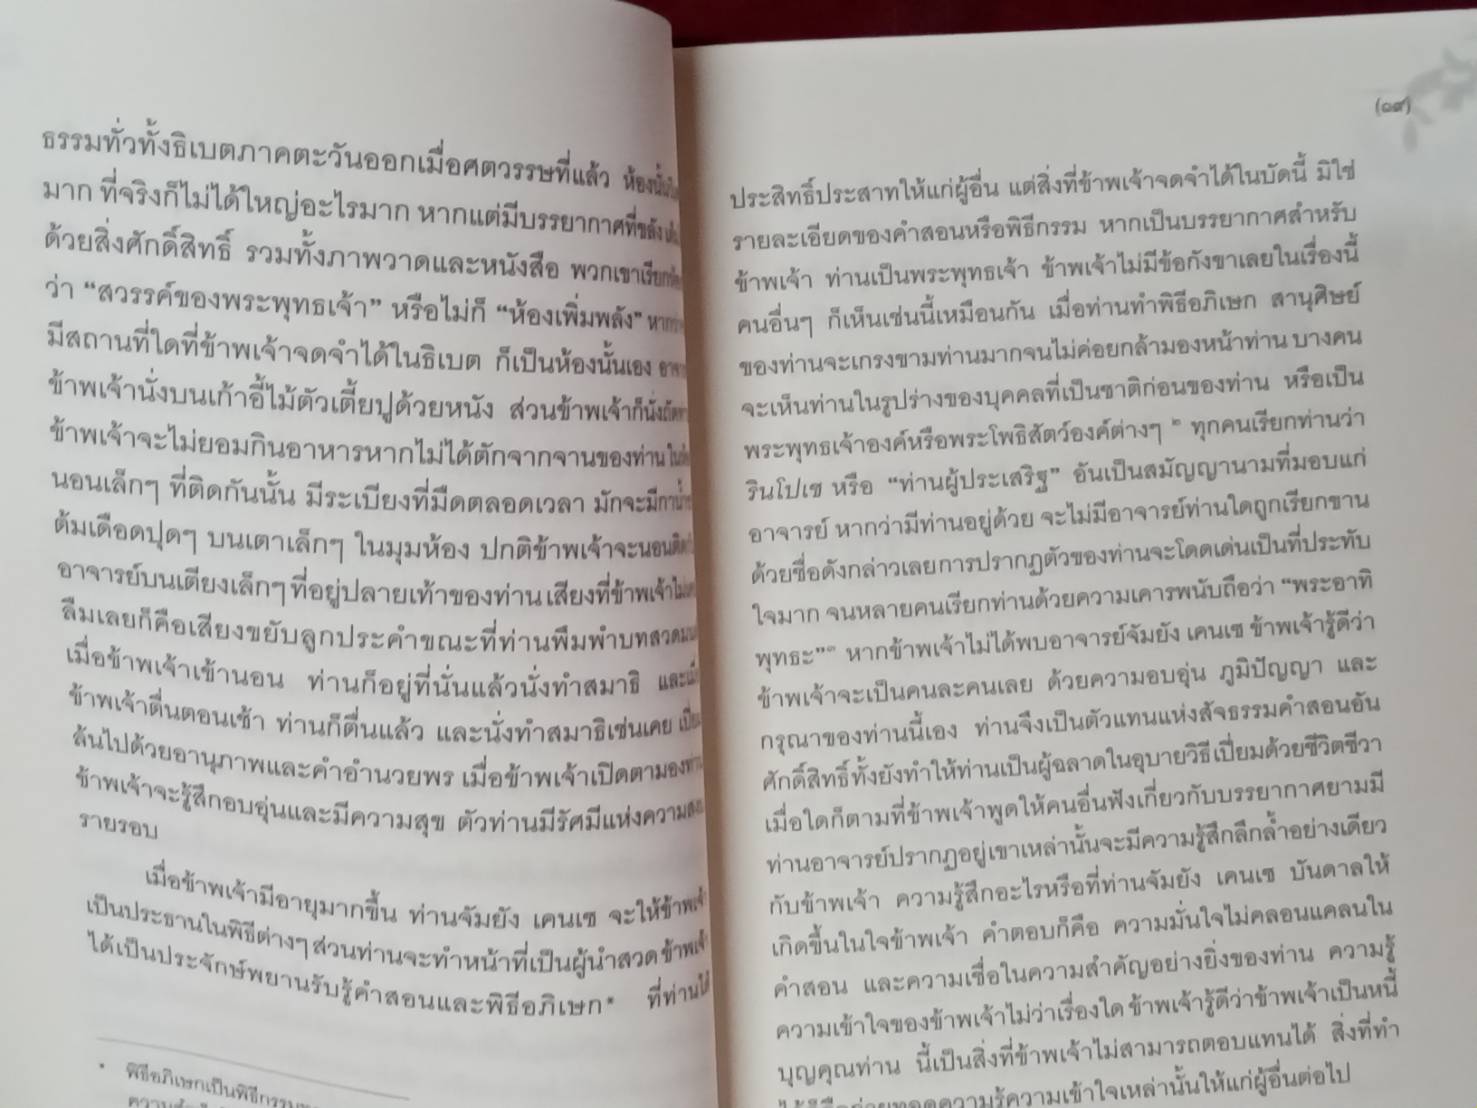 ธรรมทั่วทั้งธิเบตภาคตะวันออกเมื่อศตวรรษที่แล้ว ห้องนั้น
มาก ที่จริงก็ไม่ได้ใหญ่อะไรมาก หากแต่มีบรรยากาศที่ขลัง
ด้วยสิ่งศักดิ์สิทธิ์ รวมทั้งภาพวาดและหนังสือ พวกเขาเรียก
ว่า “สวรรค์ของพระพุทธเจ้า” หรือไม่ก็ “ห้องเพิ่มพลัง”
มีสถานที่ใดที่ข้าพเจ้าจดจำได้ในธิเบต ก็เป็นห้องนั้นเอง
ข้าพเจ้านั่งบนเก้าอี้ไม้ตัวเตี้ยปูด้วยหนัง ส่วนข้าพเจ้าก็นั่ง
ข้าพเจ้าจะไม่ยอมกินอาหารหากไม่ได้ตักจากจานของท่าน
นอนเล็กๆ ที่ติดกันนั้น มีระเบียงที่มืดตลอดเวลา มักจะมี
ต้มเดือดปุดๆ บนเตาเล็กๆ ในมุมห้อง ปกติข้าพเจ้าจะนอน
อาจารย์บนเตียงเล็กๆ ที่อยู่ปลายเท้าของท่าน เสียงที่ข้าพเจ้า
ลืมเลยก็คือเสียงขยับลูกประคำขณะที่ท่านพึมพำบทสวด
เมื่อข้าพเจ้าเข้านอน ท่านก็อยู่ที่นั่นแล้วนั่งทำสมาธิ
ข้าพเจ้าตื่นตอนเช้า ท่านก็ตื่นแล้ว และนั่งทำสมาธิเช่นเคย
ล้นไปด้วยอานุภาพและคำอำนวยพร เมื่อข้าพเจ้าเปิดตามอง
ข้าพเจ้าจะรู้สึกอบอุ่นและมีความสุข ตัวท่านมีรัศมีแห่งความ
รายรอบ
เมื่อข้าพเจ้ามีอายุมากขึ้น ท่านจัมยัง เคนเซ จะให้ข้าพเจ้า
เป็นประธานในพิธีต่างๆ ส่วนท่านจะทำหน้าที่เป็นผู้นำสวด ข้าพเจ้า
ได้เป็นประจักษ์พยานรับรู้คำสอนและพิธีอภิเษก* ที่ท่านได้
* พิธีอภิเษกเป็นพิธีกรรม
(๑๙)
ประสิทธิ์ประสาทให้แก่ผู้อื่น แต่สิ่งที่ข้าพเจ้าจดจำได้ในบัดนี้ มิใช่
รายละเอียดของคำสอนหรือพิธีกรรม หากเป็นบรรยากาศสำหรับ
ข้าพเจ้า ท่านเป็นพระพุทธเจ้า ข้าพเจ้าไม่มีข้อกังขาเลยในเรื่องนี้
คนอื่นๆ ก็เห็นเช่นนี้เหมือนกัน เมื่อท่านทำพิธีอภิเษก สานุศิษย์
ของท่านจะเกรงขามท่านมากจนไม่ค่อยกล้ามองหน้าท่าน บางคน
จะเห็นท่านในรูปร่างของบุคคลที่เป็นชาติก่อนของท่าน หรือเป็น
พระพุทธเจ้าองค์หรือพระโพธิสัตว์องค์ต่างๆ ทุกคนเรียกท่านว่า
รินโปเช หรือ “ท่านผู้ประเสริฐ” อันเป็นสมัญญานามที่มอบแก่
อาจารย์ หากว่ามีท่านอยู่ด้วย จะไม่มีอาจารย์ท่านใดถูกเรียกขาน
ด้วยชื่อดังกล่าวเลยการปรากฏตัวของท่านจะโดดเด่นเป็นที่ประทับ
ใจมาก จนหลายคนเรียกท่านด้วยความเคารพนับถือว่า “พระอาทิ
พุทธะ” หากข้าพเจ้าไม่ได้พบอาจารย์จัมยัง เคนเซ ข้าพเจ้ารู้ดีว่า
ข้าพเจ้าจะเป็นคนละคนเลย ด้วยความอบอุ่น ภูมิปัญญา และ
กรุณาของท่านนี้เอง ท่านจึงเป็นตัวแทนแห่งสัจธรรมคำสอนอัน
ศักดิ์สิทธิ์ทั้งยังทำให้ท่านเป็นผู้ฉลาดในอุบายวิธีเปี่ยมด้วยชีวิตชีวา
เมื่อใดก็ตามที่ข้าพเจ้าพูดให้คนอื่นฟังเกี่ยวกับบรรยากาศยามมี
ท่านอาจารย์ปรากฏอยู่เขาเหล่านั้นจะมีความรู้สึกลึกล้ำอย่างเดียว
กับข้าพเจ้า ความรู้สึกอะไรหรือที่ท่านจัมยัง เคนเซ บันดาลให้
เกิดขึ้นในใจข้าพเจ้า คำตอบก็คือ ความมั่นใจไม่คลอนแคลนใน
คำสอน และความเชื่อในความสำคัญอย่างยิ่งของท่าน ความรู้
ความเข้าใจของข้าพเจ้าไม่ว่าเรื่องใด ข้าพเจ้ารู้ดีว่าข้าพเจ้าเป็นหนี้
บุญคุณท่าน นี้เป็นสิ่งที่ข้าพเจ้าไม่สามารถตอบแทนได้ สิ่งที่ทำ
ได้ก็คือถ่ายทอดความรู้ความเข้าใจเหล่านั้นให้แก่ผู้อื่นต่อไป